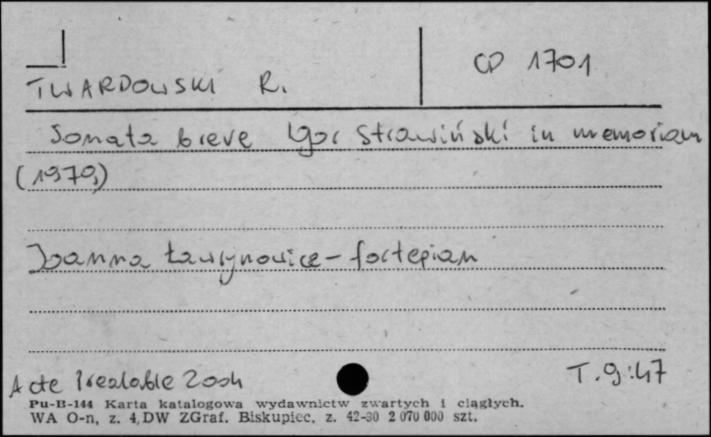 CD 1701
TWARDOWSKI R.
Sonata breve Igor Strawiński in memoriam
(1979)
Joanna Ławrynowicz - fortepian
T. 9:47
Acte Préalable 2004
Pu-B-144 Karta katalogowa wydawnictw zwartych i ciągłych.
WA O-n, z. 4, DW ZGraf. Biskupiec, z. 42-80 2 070 000 szt.